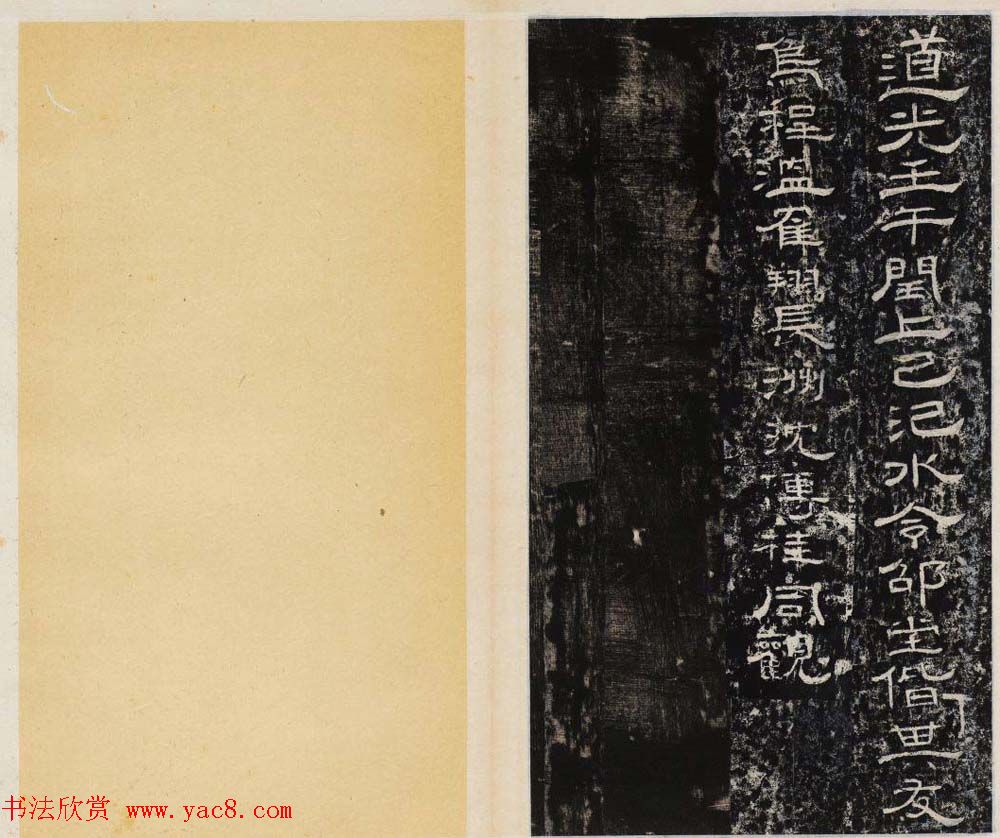 道光壬午閏上巳汜水令邵坣偕世友
烏程溫隺翔長洲沈傳桂同觀
书法欣赏 www.yac8.com